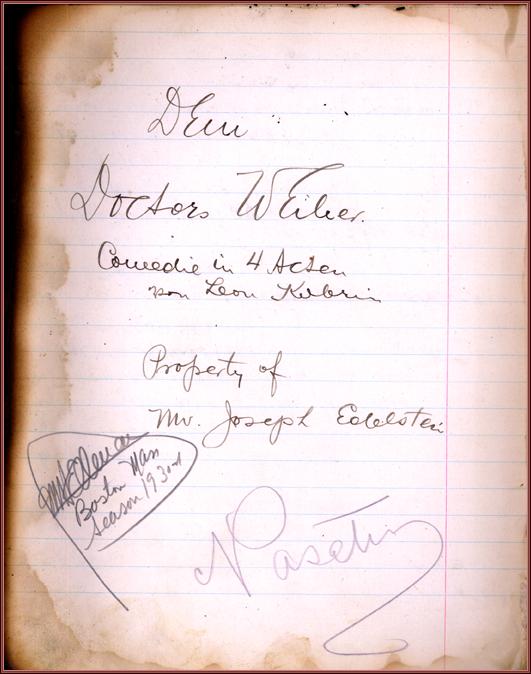 Dem
Doctors Weiber.
Comedie in 4 Acten
von Leon Kobrin
Property of
Mr. Joseph Edelstein
Boston Mass
Season 1930-